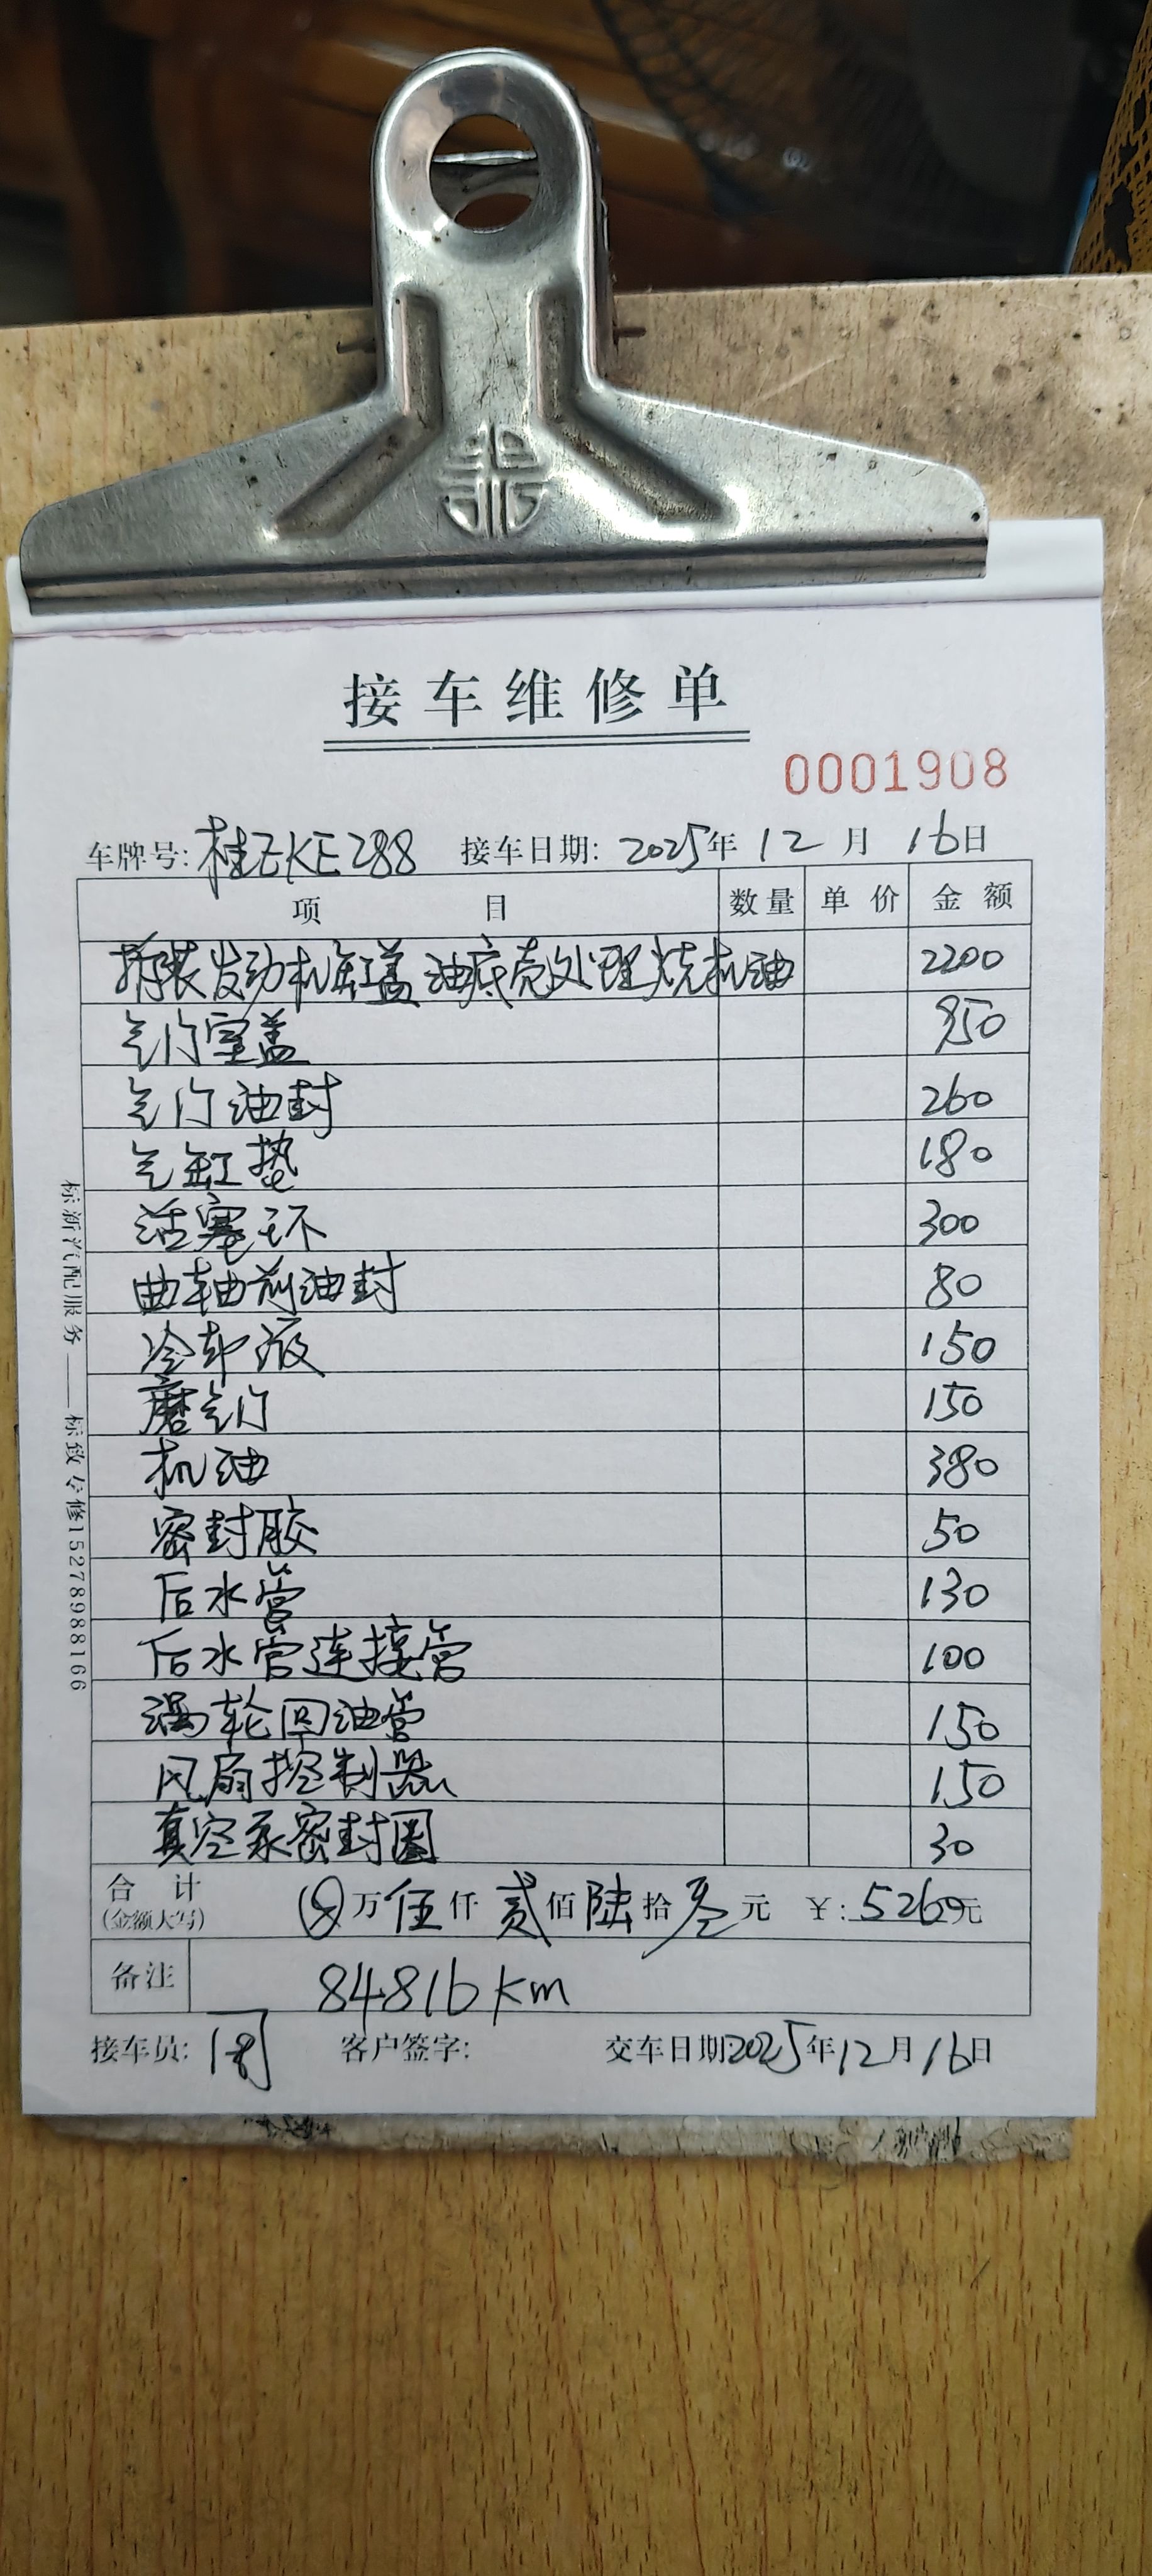 接车维修单
0001908
车牌号: 桂EKE288 接车日期: 2025年 12 月 16日
项 目 数量 单价 金额
拆装发动机缸盖油底壳处理烧机油 2200
气门室盖 950
气门油封 260
气缸垫 180
活塞环 300
曲轴前油封 80
冷却液 150
磨气门 150
机油 380
密封胶 50
后水管 130
后水管连接管 100
涡轮回油管 150
风扇控制器 150
真空泵密封圈 30
合计 万 伍 仟 贰 佰 陆 拾 元 ¥: 5260元
(金额大写)
备注 84816km
接车员: 客户签字: 交车日期2025年12月16日
标新汽配服务——标致专修15278988166